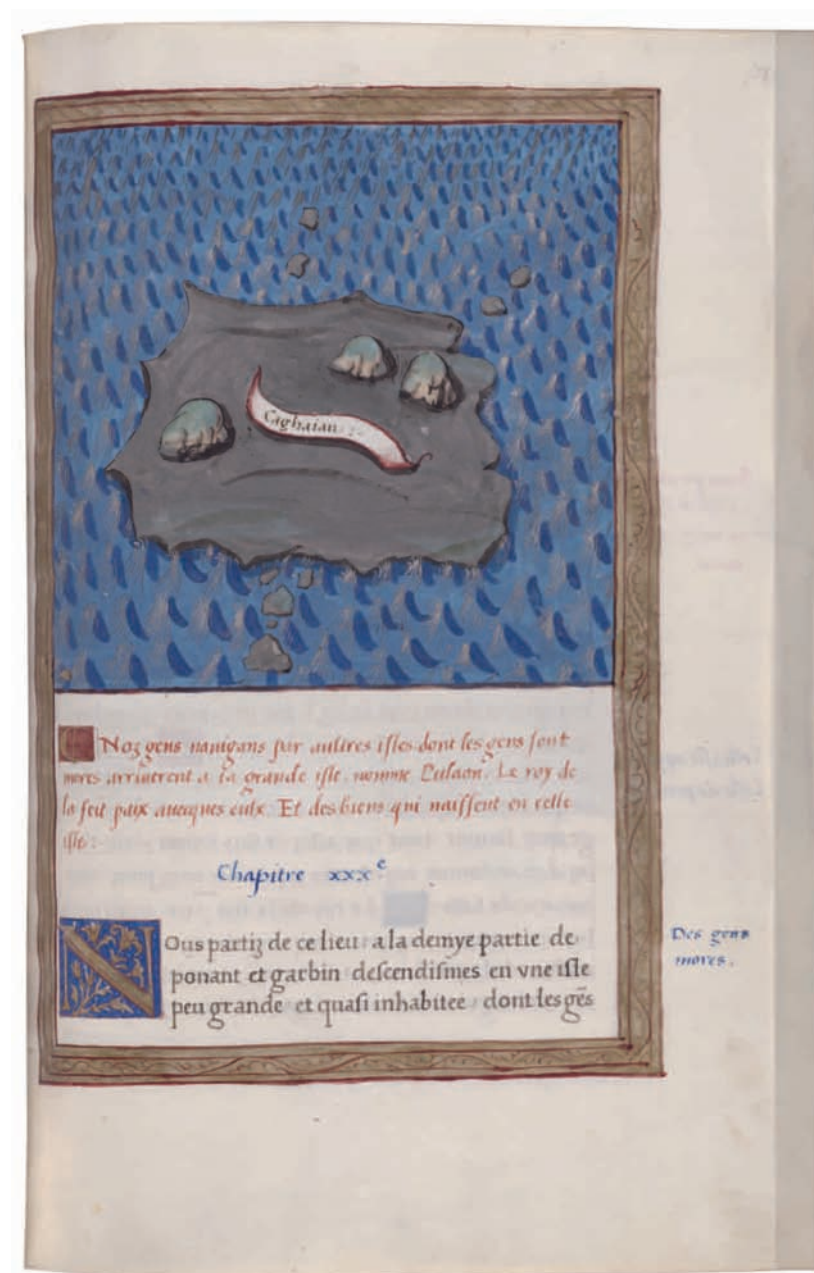 Caghaian
Noz gens nauigans par aultres isles dont les gens sont
mores arriuerent a la grande isle nomme Pulaon. Le roy de
la feit paix auecques eulx. Et des biens qui naissent en celle
isle.
Chapitre xxx e
NOus partiz de ce lieu a la demye partie de
ponant et garbin descendismes en vne isle
peu grande et quasi inhabitee dont les gẽs
Des gens
mores.